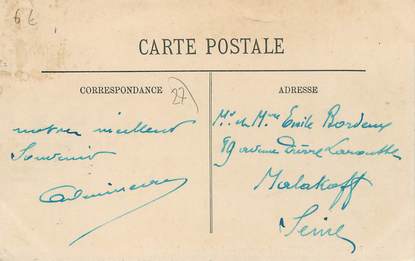 6 €
CARTE POSTALE
CORRESPONDANCE
27
ADRESSE
notre meilleur
Souvenir
Mr et Mme Emile Bordeux
89 avenue Pierre Larousse
Malakoff
Seine